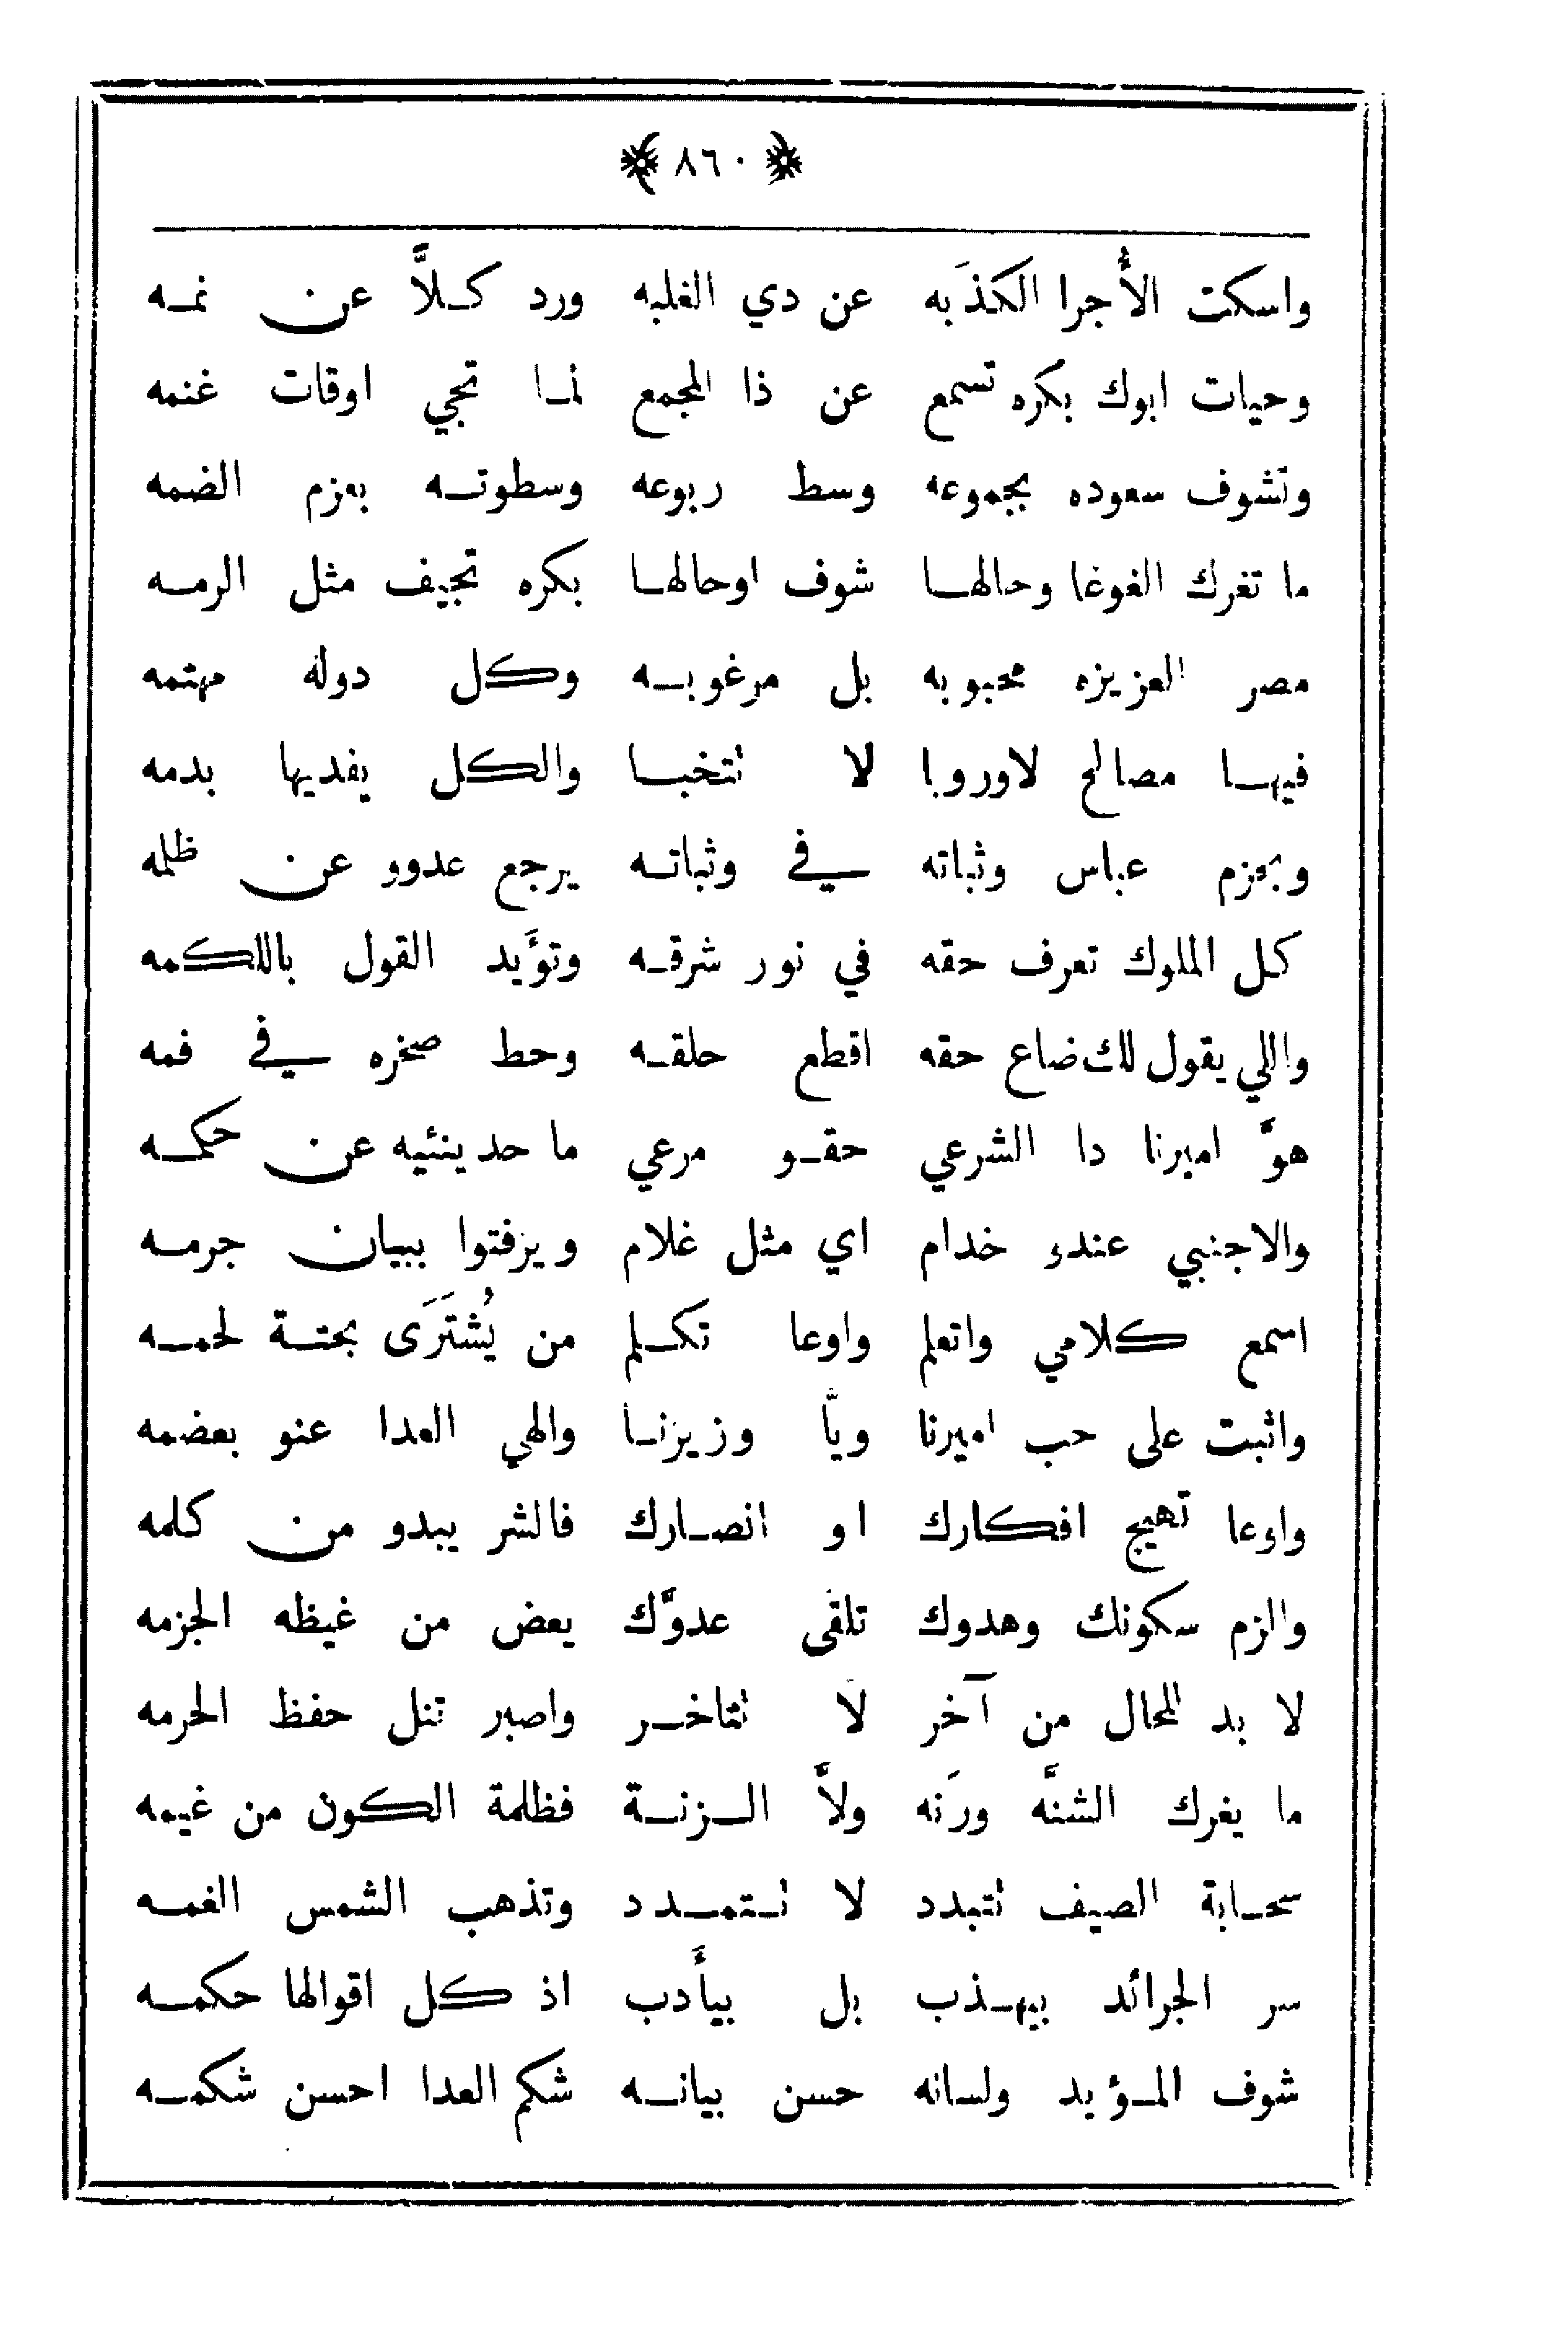 ﴿ ٨٦٠ ﴾
واسكت الأُجرا الكذَبه عن دي الغلبه ورد كـلاَّ عن نمـه
وحيات ابوك بكره تسمع عن ذا المجمع لمـا تجي اوقات غنمه
وتشوف سعوده بمجموعه وسط ربوعه وسطوتـه بعزم الضمه
ما تغرك الغوغا وحالهـا شوف اوحالهـا بكره تجيف مثل الرمـه
مصر العزيزه محبوبه بل مرغوبـه وكل دوله مهتمه
فيهـا مصالح لاوروبا لا تتخبـا والكل يفديها بدمه
وبحزم عباس وثباته في وثباتـه يرجع عدوو عن ظلمه
كل الملوك تعرف حقه في نور شرقـه وتوَّيد القول باللكمه
واللي يقول لك ضاع حقه اقطع حلقـه وحط صخره في فمه
هوَّ اميرنا دا الشرعي حقـو مرعي ما حد ينثيه عن حكمـه
والاجنبي عندو خدام اي مثل غلام ويزفتوا ببيان جرمـه
اسمع كلامي واتعلم واوعا تكـلم من يُشتَرَى بحتـة لحمـه
واثبت على حب اميرنا ويَّا وزيرنـا والهي العدا عنو بعضمه
واوعا تهيج افكارك او انصـارك فالشر يبدو من كلمه
والزم سكونك وهدوك تلقى عدوَّك يعض من غيظه الجزمه
لا بد للحال من آخر لا تتاخـر واصبر تنل حفظ الحرمه
ما يغرك الشنَّه ورَنه ولاَّ الـزنـة فظلمة الكون من غيمه
سحـابة الصيف تتبدد لا تـتمـدد وتذهب الشمس الغمـه
سر الجرائد بيهـذب بل بيأَدب اذ كل اقوالها حكمـه
شوف المـؤيد ولسانه حسن بيانـه شكم العدا احسن شكمـه